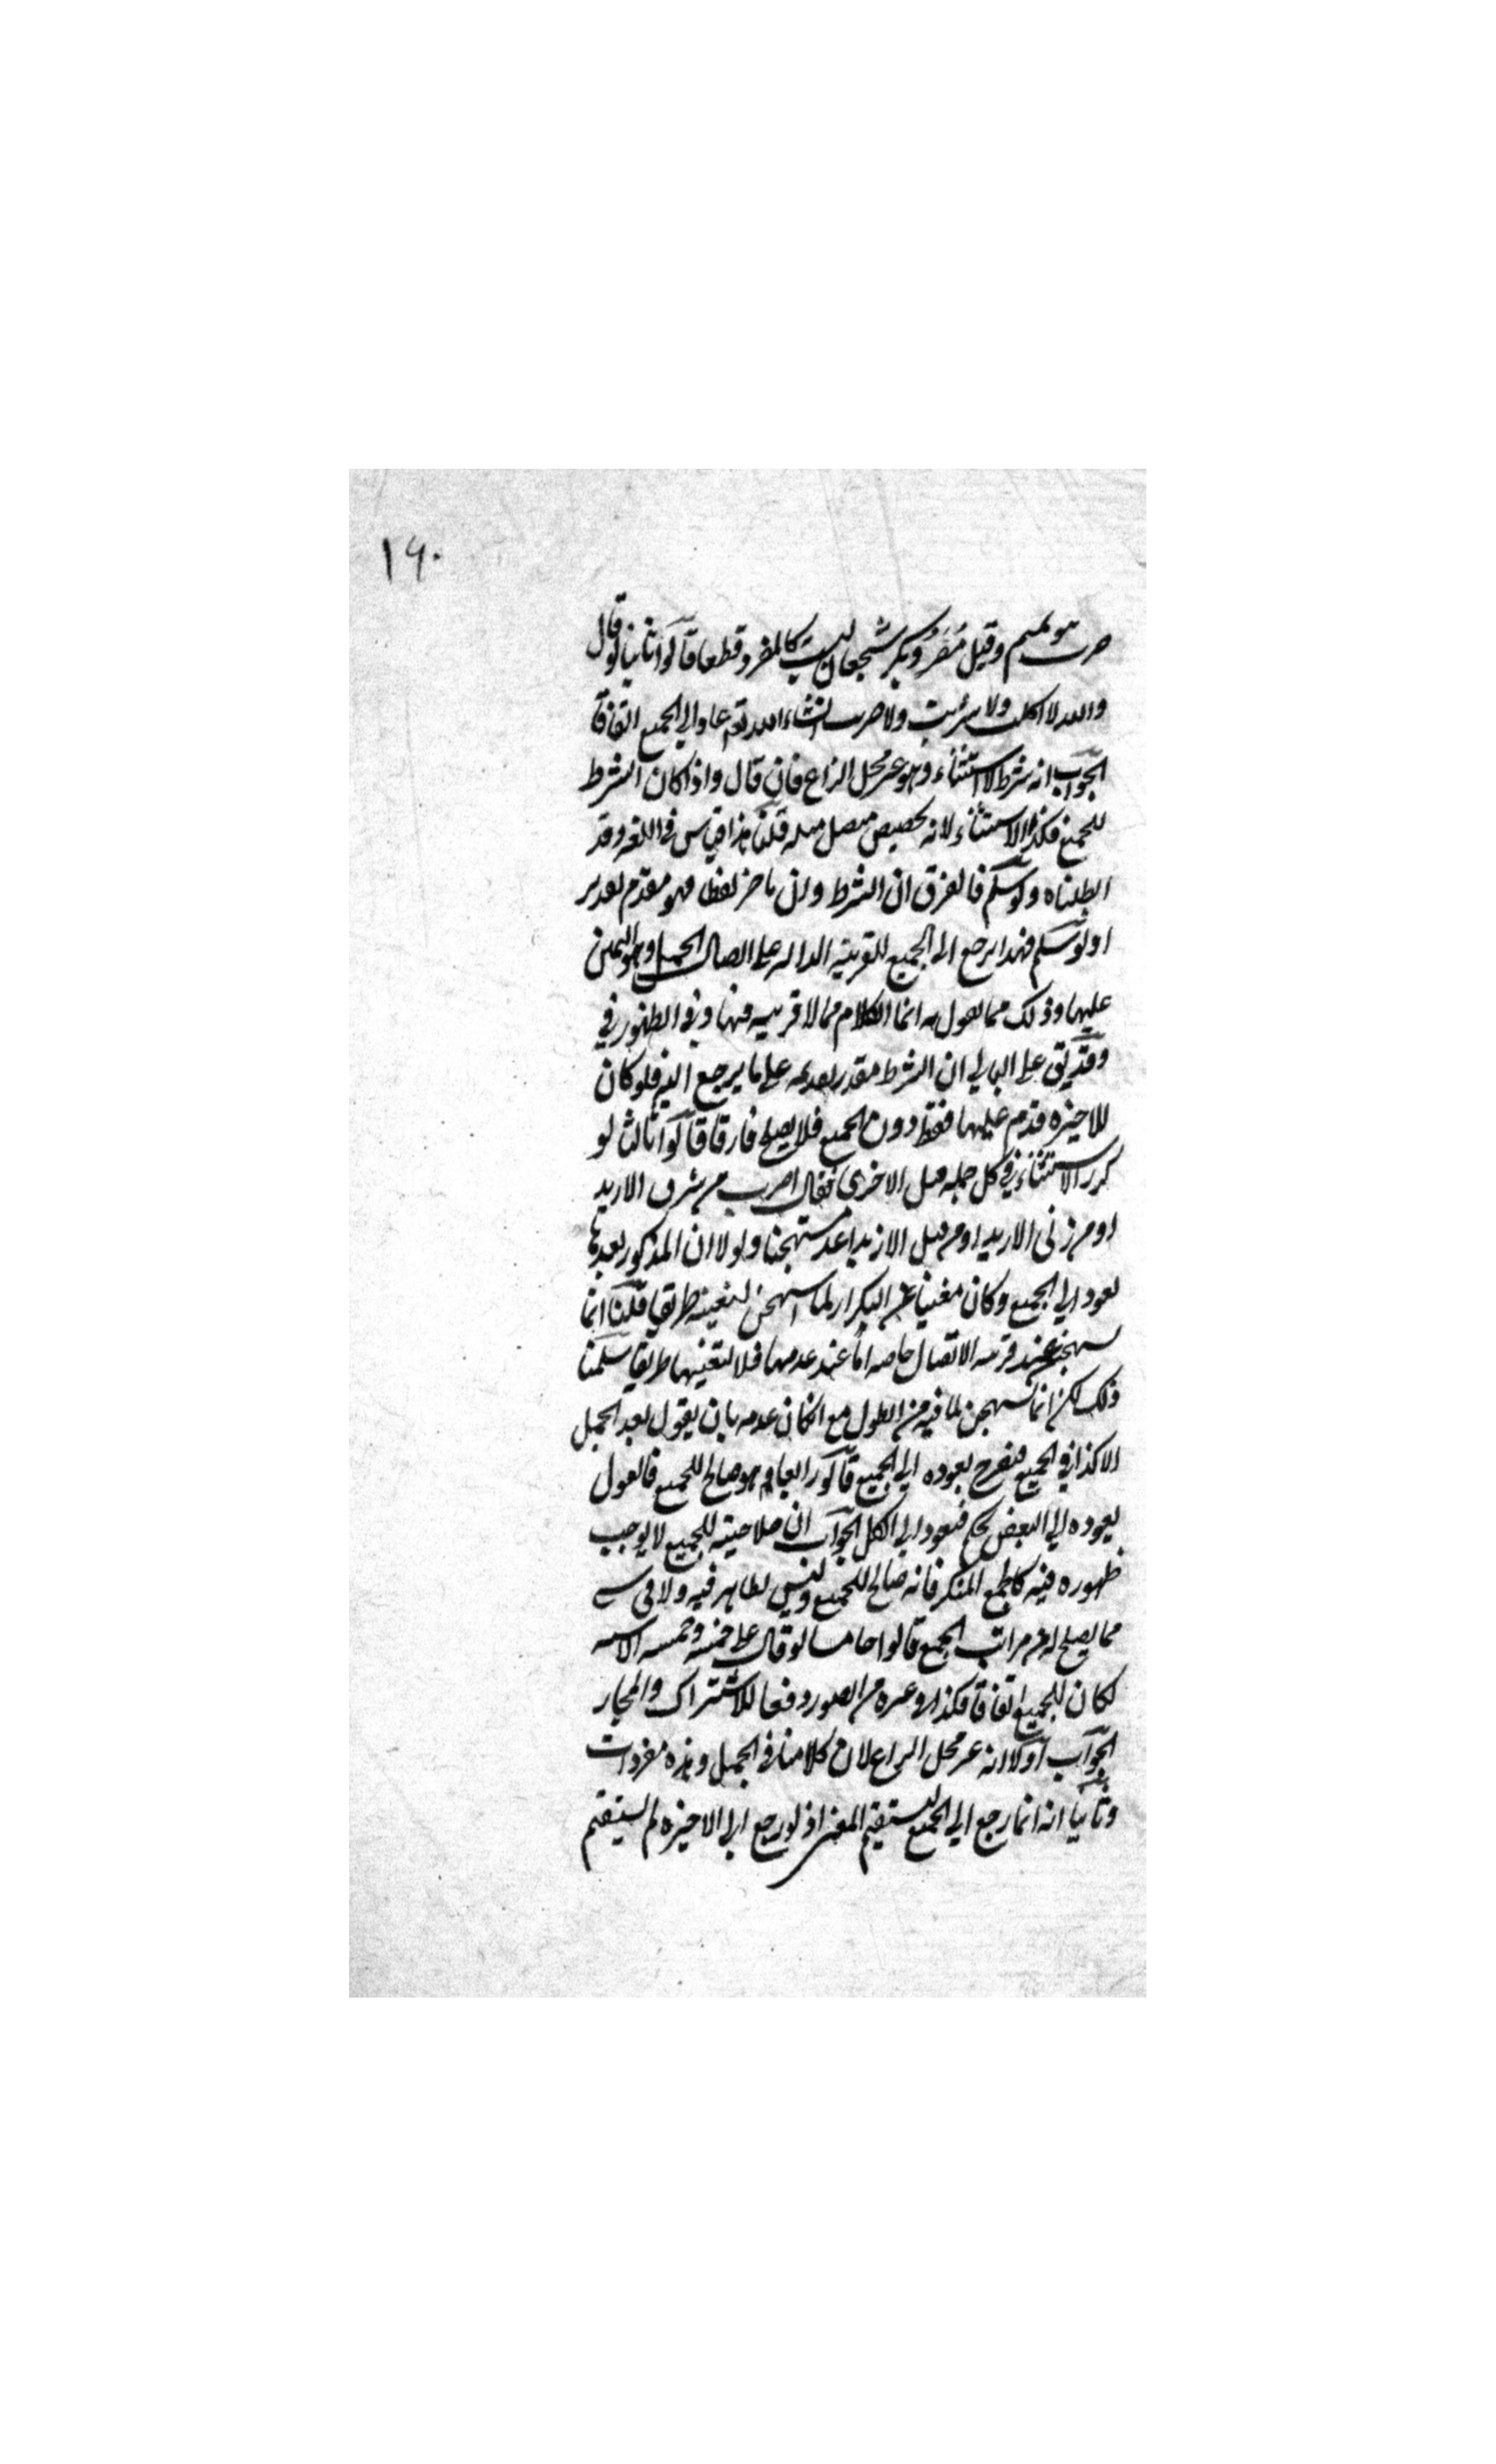 ١٦٠
ضرب بنو تميم وقيل مضر وبكر شجعان ليست كالمفرد قطعا قالوا ثانيا لو قال
والله لا اكلت ولا شربت ولا ضربت ان شاء الله تعم عاد الي الجميع اتفاقا
الجواب انه شرط لا استثناء وهو غير محل النزاع فان قال واذا كان الشرط
للجميع فكذا الاستثناء لانه تخصيص متصل مثله قلنا هذا قياس في اللغه وقد
ابطلناه ولو سلم فالفرق ان الشرط وان تاخر لفظا فهو مقدم تقديرا
او لو سلم فهذا يرجع الى الجميع للقرينه الداله على اتصال الجمل وهو اليمين
عليها وذلك مما نقول به انما الكلام فيما لا قرينه فيها وفي
وقد يق على التالي ان الشرط مقدر تقديمه على ما يرجع اليه فلو كان
للاخيره قدم عليها فقط دون الجميع فلا يصلح فارقا قالوا ثالثا لو
كرر الاستثناء في كل جمله قبل الاخرى فقال اضرب من سرق الا زيدا
او من زنى الا زيدا او من قتل الا زيدا عد مستهجنا ولولا ان المذكور بعدها
يعود الي الجميع وكان مغنيا عن التكرار لما استهجن لتعينه طريقا قلنا انما
يستهجن عند قرينه الاتصال خاصه اما عند عدمها فلا لتعينها طريقا سلمنا
ذلك لكن انما يستهجن لما فيه من الطول مع امكان عدمه بان يقول بعد الجمل
الا كذا في الجميع فيصرح بعوده الي الجميع قالوا رابعا هو صالح للجميع فالقول
بعوده الي البعض تحكم فيعود الي الكل الجواب ان صلاحيته للجميع لا يوجب
ظهوره فيه كالجمع المنكر فانه صالح للجميع وليس بظاهر فيه ولا في شي
مما يصلح له من مراتب الجمع قالوا خامسا لو قال علي خمسه وخمسه الا سته
لكان للجميع اتفاقا فكذا في غيره من الصور دفعا للاشتراك والمجاز
الجواب اولا انه غير محل النزاع لان كلامنا في الجمل وهذه مفردات
وثانيا انه انما رجع الي الجميع ليستقيم المعنى اذ لو رجع الي الاخيره لم يستقم